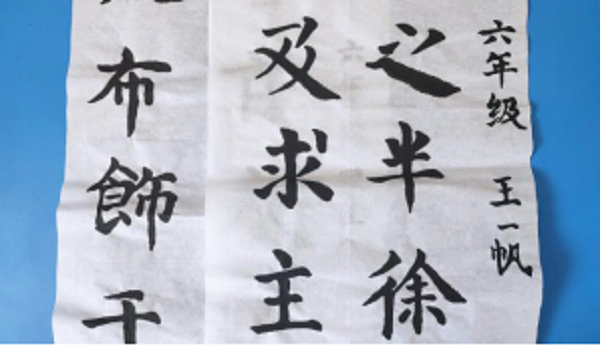 六年级 王一帆
之半徐
及求主
布飾